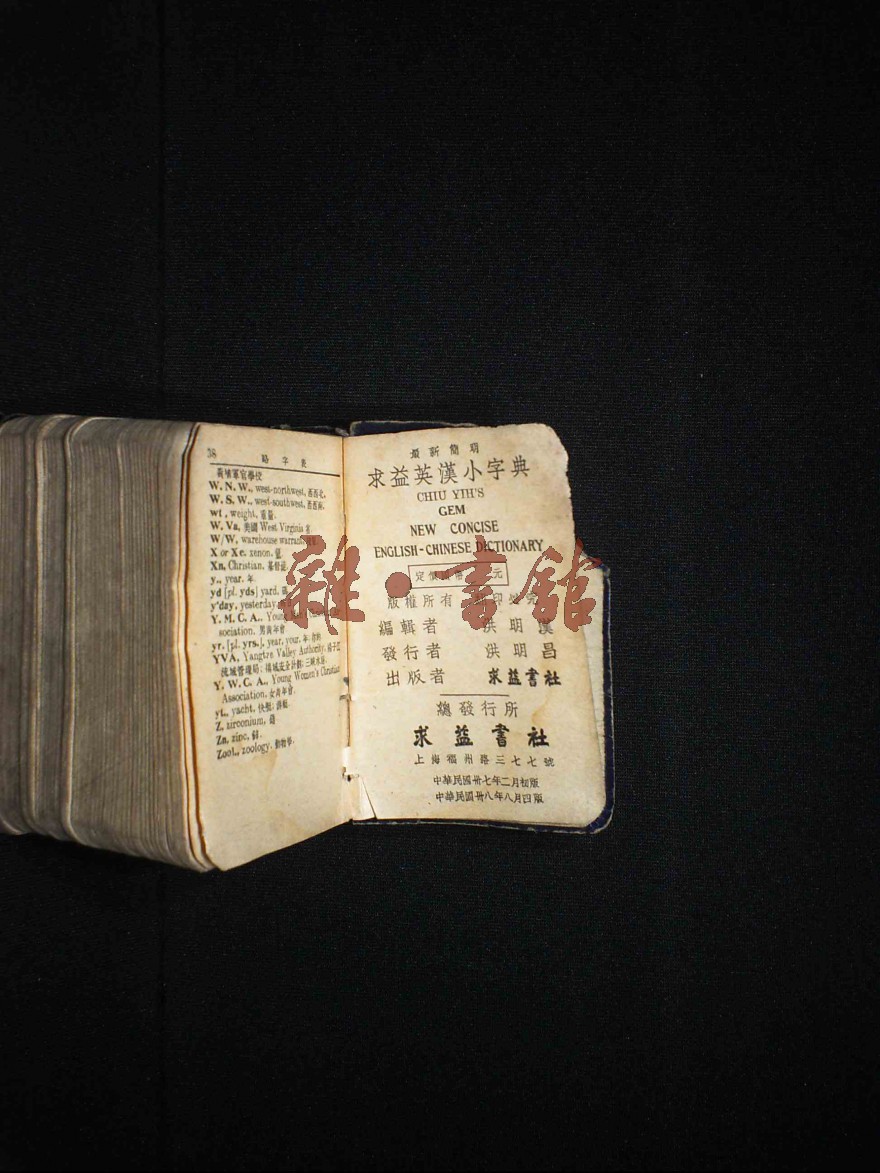 38
略字表
黃埔軍官學校
W. N. W., west-northwest, 西西北.
W. S. W., west-southwest, 西西南.
wt., weight, 重量.
W. Va, 美國 West Virginia 省.
W/W, warehouse warrant,
X or Xe, xenon,
Xn, Christian, 基督徒.
y., year. 年.
yd [pl. yds] yard,
y'day, yesterday,
Y. M. C. A., Young
sociation. 男青年會
yr. [pl. yrs.], year, your. 年; 你的
YVA, Yangtze Valley Authority, 揚子江
流域管理局;
Y. W. C. A., Young Women's Christian
Association, 女青年會.
yt., yacht, 快艇;
Z, zirconium, 鋯
Zn, zinc, 鋅.
Zool., zoology, 動物學.
最新簡明
求益英漢小字典
CHIU YIH'S
GEM
NEW CONCISE
ENGLISH-CHINESE DICTIONARY
定價 元
版權所有 印必究
編輯者 洪明漢
發行者 洪明昌
出版者 求益書社
總發行所
求益書社
上海福州路三七七號
中華民國卅七年二月初版
中華民國卅八年八月四版
雜·書館